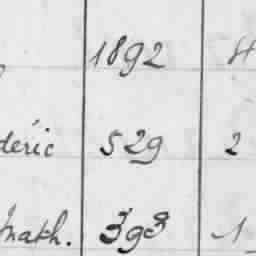 1892
déric 529 2
math. 393 1